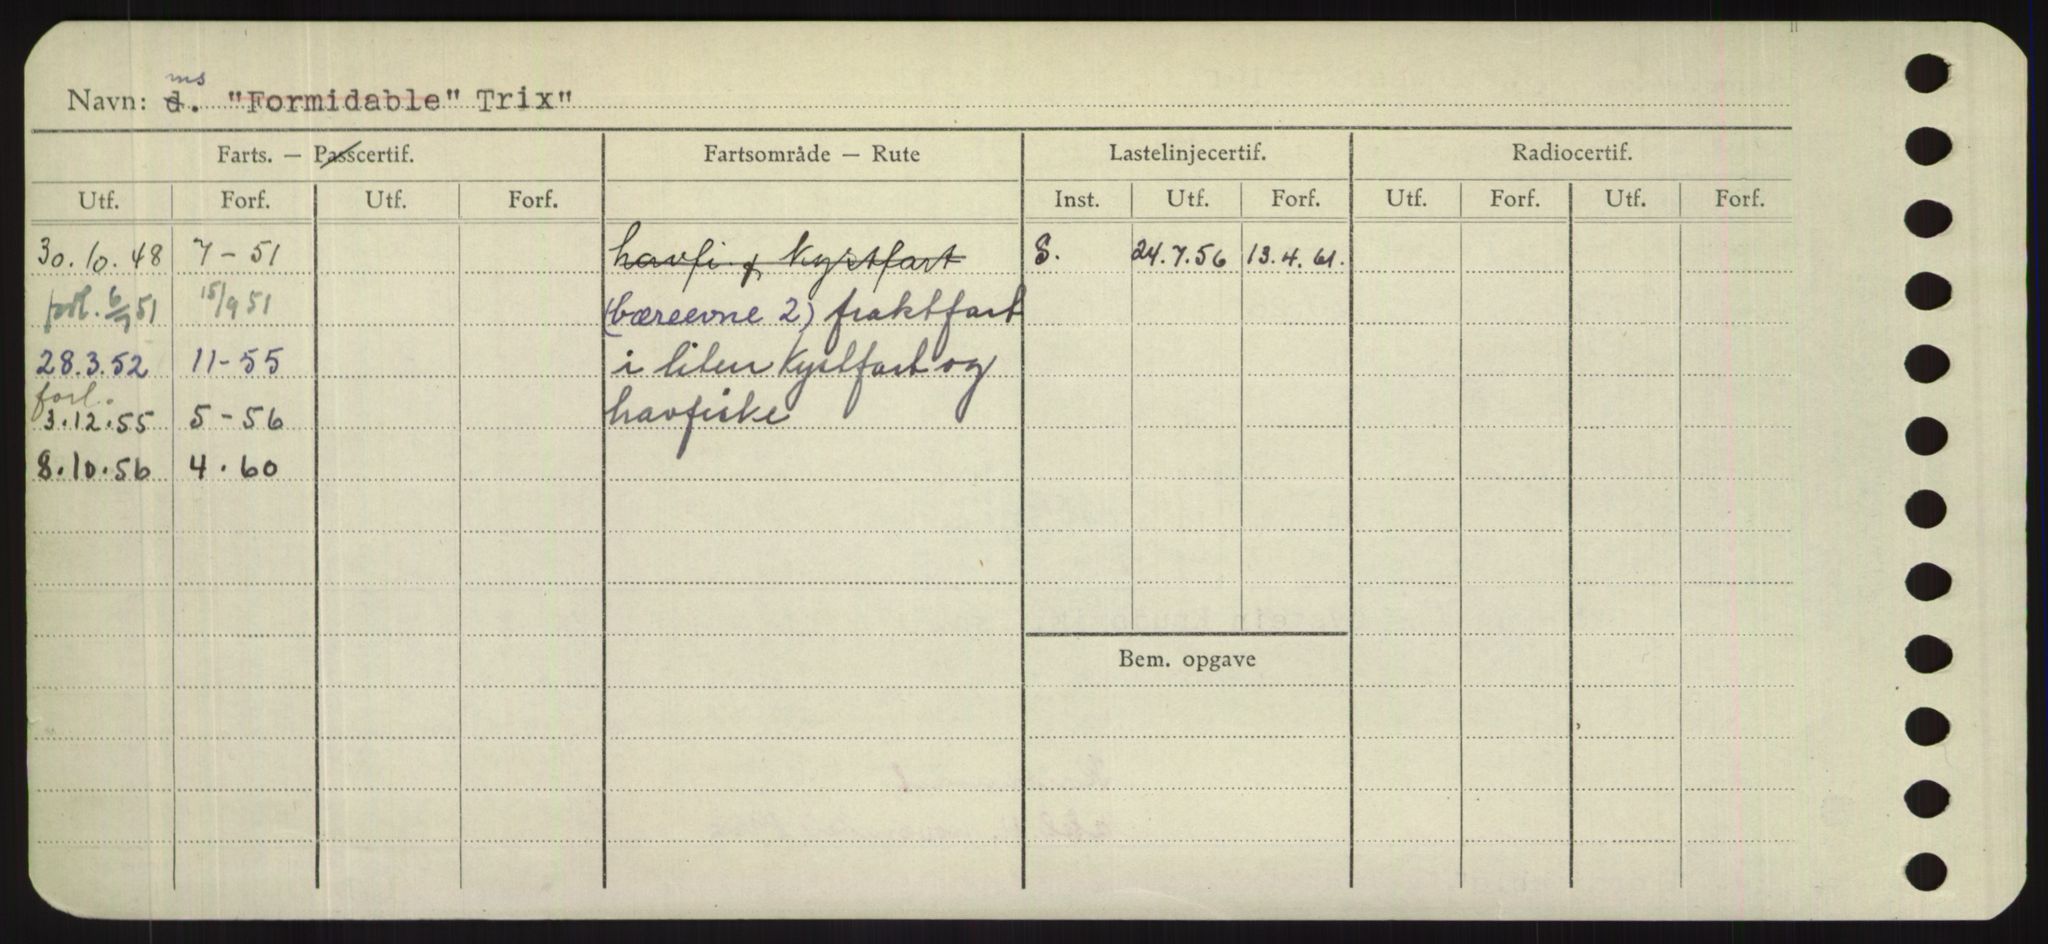 ms
Navn: d. "Formidable" Trix"
Farts. — Passcertif. Fartsområde — Rute Lastelinjecertif. Radiocertif.
Utf. Forf. Utf. Forf. Inst. Utf. Forf. Utf. Forf. Utf. Forf.
30.10.48 7-51 havfi. og kystfart S. 24.7.56 13.4.61.
forl. 6/7 51 15/9 51 (bæreevne 2) fraktfart
28.3.52 11-55 i liten kystfart og
forl.
3.12.55 5-56 havfiske
8.10.56 4.60
Bem. opgave